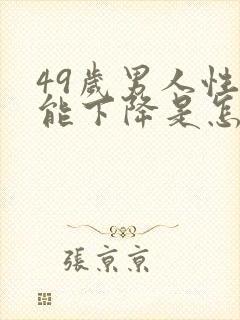 49歲男人性
能下降是怎
張京京